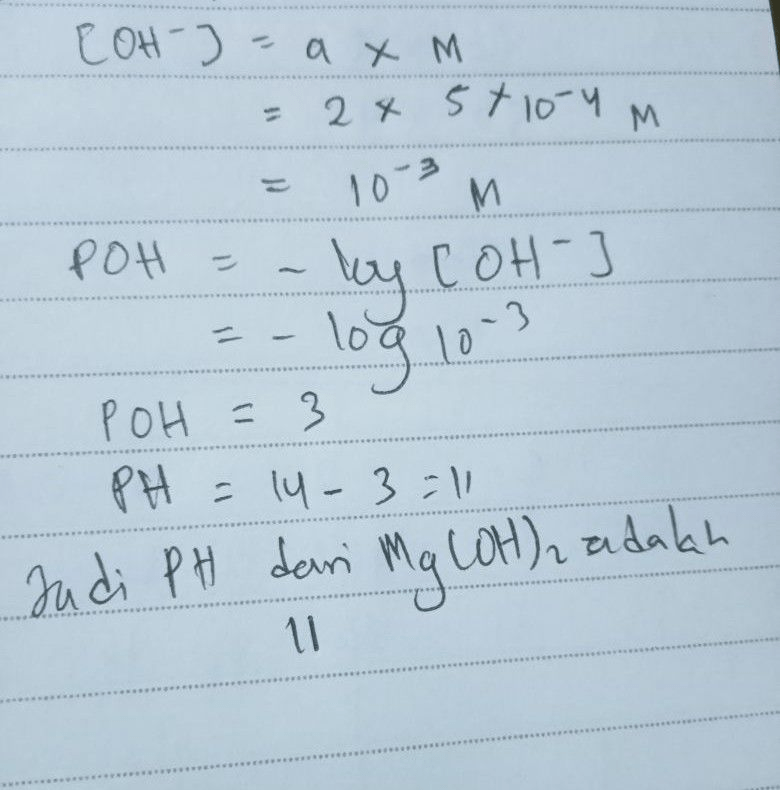 [OH⁻] = a × M
= 2 × 5 × 10⁻⁴ M
= 10⁻³ M
POH = - log [OH⁻]
= - log 10⁻³
POH = 3
PH = 14 - 3 = 11
Jadi PH dari Mg(OH)₂ adalah
11